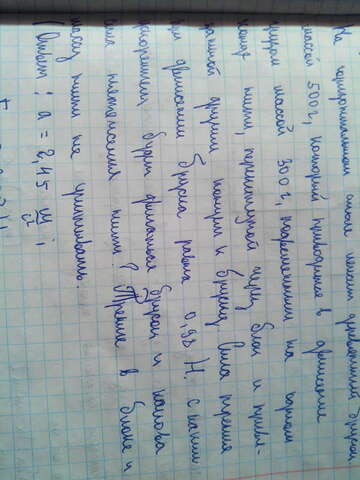 На горизонтальном столе лежит деревянный брусок
массой 500г, который приводится в движение
грузом массой 300г, подвешенным на одном
конце нити, перекинутой через блок и привя-
занной другим концом к бруску. Сила трения
при движении бруска равна 0,98 Н. С каким
ускорением будет двигаться брусок и какова
сила натяжения нити? Трение в блоке и
массу нити не учитывать.
(Ответ: a = 2,45 м/с²;